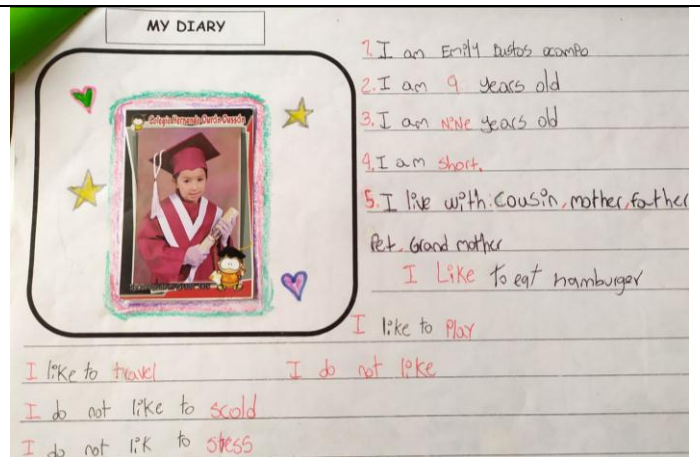 MY DIARY
Colegio Hernando Durán Dussán
1. I am Emily Bustos ocampo
2. I am 9 years old
3. I am NiNe years old
4. I am short.
5. I live with: cousin, mother, father
Pet, Grand mother
I Like to eat hamburger
I like to Play
I like to travel
I do not like
I do not like to scold
I do not lik to stess